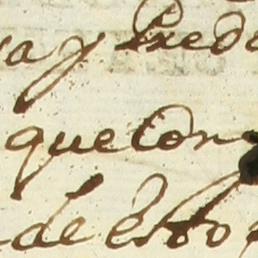 a y Predo
que con
de esto